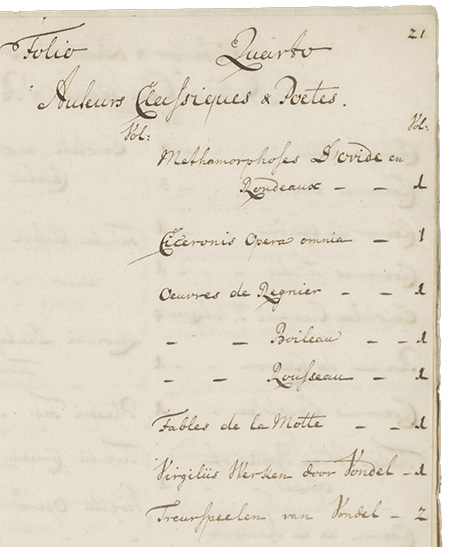 21
Folio Quarto
Auteurs Classiques & Poetes.
Vol: Vol:
Methamorphoses D'ovide en
Rondeaux — — 1
Ciceronis Opera omnia — 1
Oeuvres de Regnier — — 1
— — Boileau — — 1
— — Rousseau — — 1
Fables de la Motte — — 1
Virgilius Werken door Vondel — 1
Treurspeelen van Vondel — 2